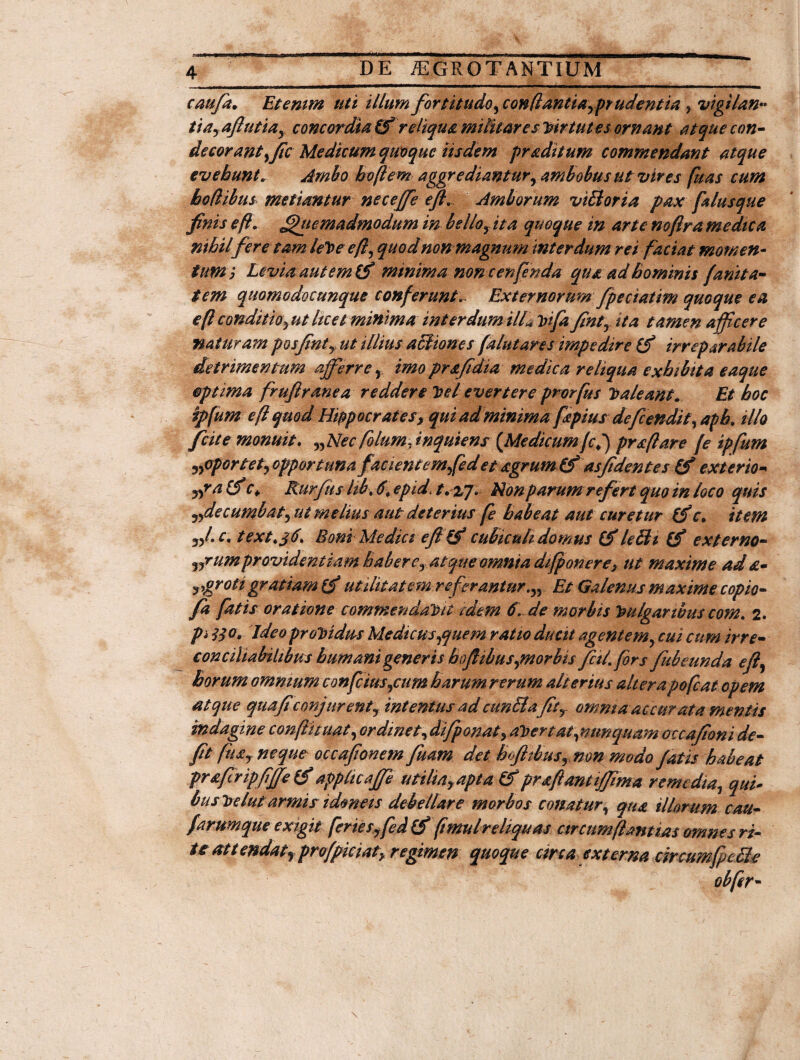 4 DE ÆGROTANTIUM
cauſa. Etenim uti illum fortitudo, conſtantia, prudentia, vigilan-
tia, aſtutia, concordia & reliquæ militares virtutes ornant atque con-
decorant, ſic Medicum quoque iisdem præditum commendant atque
evehunt. Ambo hoſtem aggrediantur, ambobus ut vires ſuas cum
hoſtibus metiantur neceſſe eſt. Amborum victoria pax ſalusque
finis eſt. Quemadmodum in bello, ita quoque in arte noſtra medica
nihil fere tam leve eſt, quod non magnum interdum rei faciat momen-
tum; Levia autem & minima non cenſenda quæ ad hominis ſanita-
tem quomodocunque conferunt. Externorum ſpeciatim quoque ea
eſt conditio, ut licet minima interdum illa viſa ſint, ita tamen afficere
naturam posſint, ut illius actiones ſalutares impedire & irreparabile
detrimentum afferre, imo præſidia medica reliqua exhibita eaque
optima fruſtranea reddere vel evertere prorſus valeant. Et hoc
ipſum eſt quod Hippocrates, qui ad minima ſæpius deſcendit, aph. illo
ſcite monuit. „Nec ſolum, inquiens (Medicum ſc.) præſtare ſe ipſum
„oportet, opportuna facientem, ſed et ægrum & asſidentes & exterio-
„ra &c. Rurſus lib. 6. epid. t. 27. Non parum refert quo in loco quis
„decumbat, ut melius aut deterius ſe habeat aut curetur &c. item
„l. c. text. 36. Boni Medici eſt & cubiculi domus & lecti & externo-
„rum providentiam habere, atque omnia diſponere, ut maxime ad æ-
„groti gratiam & utilitatem referantur.„ Et Galenus maxime copio-
ſa ſatis oratione commendavit idem 6. de morbis vulgaribus com. 2.
p. 330. Ideo providus Medicus, quem ratio ducit agentem, cui cum irre-
conciliabilibus humani generis hoſtibus, morbis ſcil. ſors ſubeunda eſt,
horum omnium conſcius, cum harum rerum alterius altera poſcat opem
atque quaſi conjurent, intentus ad cuncta ſit, omnia accurata mentis
indagine conſtituat, ordinet, diſponat, avertat, nunquam occaſioni de-
ſit ſuæ, neque occaſionem ſuam det hoſtibus, non modo ſatis habeat
præſcripſiſſe & applicaſſe utilia, apta & præſtantiſſima remedia, qui-
bus velut armis idoneis debellare morbos conatur, quæ illorum cau-
ſarumque exigit ſeries, ſed & ſimul reliquas circumſtantias omnes ri-
te attendat, proſpiciat, regimen quoque circa externa circumſpecte
obſer-